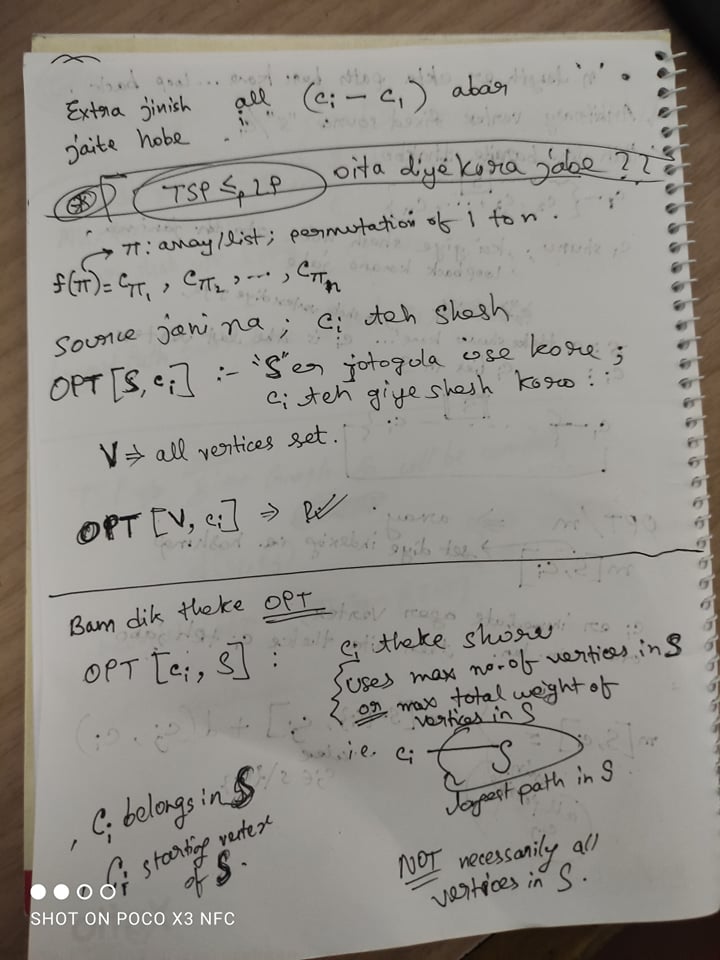 Extra jinish all (ci - c1) abar
jaite hobe
TSP ≤p LP oita diye kora jabe ??
π: array/list; permutation of 1 to n.
f(π) = Cπ1, Cπ2, ..., Cπn
Source jani na; Ci teh shesh
OPT [S, ci] :- "S" er jotogula use kore;
ci teh giye shesh koro :
V ⇒ all vertices set.
OPT [V, ci] ⇒
Bam dik theke OPT
OPT [ci, S] : ci theke shoru
uses max no. of vertices in S
or max total weight of
vertices in S
i.e. ci S
longest path in S
, Ci belongs in S
Ci starting vertex
of S.
NOT necessarily all
vertices in S.
SHOT ON POCO X3 NFC